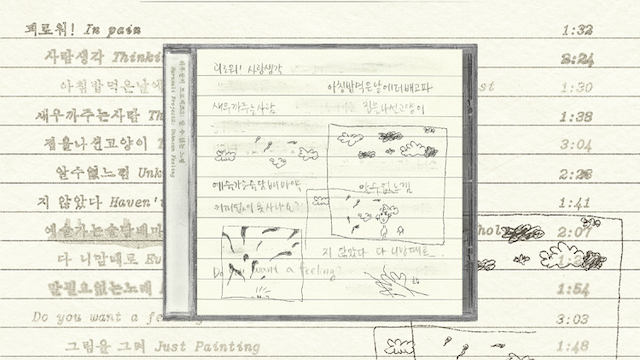 괴로워! In pain 1:32
사람생각 Thinki 2:24
아침밥먹은날에 st 1:30
새우까주는사람 Th 1:38
집을나선고양이 T 3:04
알수없는느낌 Unk 2:28
지 않았다 Haven't 1:41
예술가는술담배마 hol 2:07
다 니맘대로 Ev
말필요없는노래 1:54
Do you want a feeling 3:03
그림을 그려 Just Painting 1:48
괴로워! 사람생각
아침밥먹은날에더배고파
새우까주는사람
집을나선고양이
예술가는술담배마약
알수없는느낌
지 않았다 다 니맘대로
Do you want a feeling?